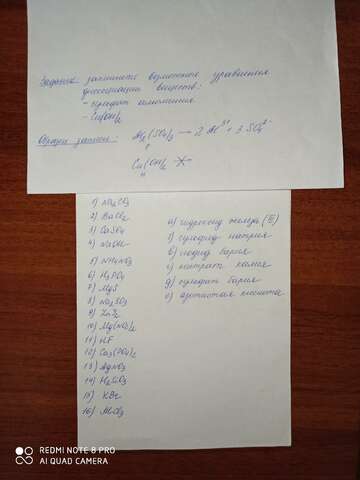 Задание: запишите возможные уравнения
диссоциации веществ:
- сульфат алюминия
- Cu(OH)₂
Образец записи: Al₂(SO₄)₃ → 2 Al³⁺ + 3 SO₄²⁻
р
Cu(OH)₂
н
1) Na₂CO₃
2) BaCl₂
3) CaSO₄
4) NaOH
5) NH₄NO₃
6) H₃PO₄
7) MgS
8) Na₂SO₃
9) ZnI₂
10) Mg(NO₃)₂
11) HF
12) Ca₃(PO₄)₂
13) AgNO₃
14) H₂SiO₃
15) KBr
16) AlCl₃
а) гидроксид железа (III)
б) сульфид натрия
в) иодид бария
г) нитрат калия
д) сульфат бария
е) азотистая кислота
REDMI NOTE 8 PRO
AI QUAD CAMERA